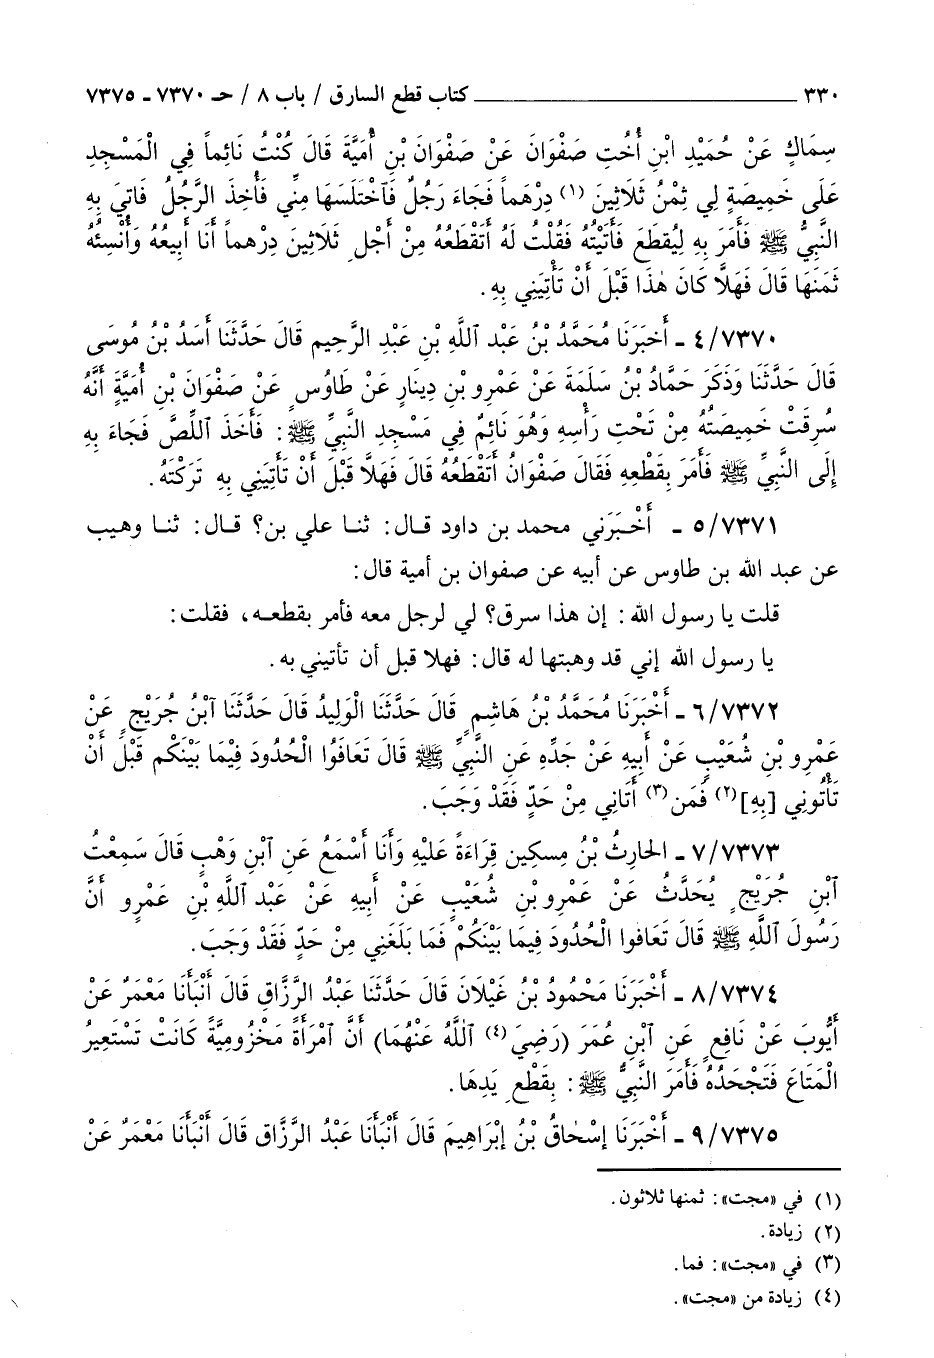 ٣٣٠ ــــــــــــــــــــ كتاب قطع السارق / باب ٨ / حـ ٧٣٧٠ ـ ٧٣٧٥
سِمَاكٍ عَنْ حُمَيْدِ ابْنِ أُخْتِ صَفْوَانَ عَنْ صَفْوَانَ بْنِ أُمَيَّةَ قَالَ كُنْتُ نَائِماً فِي الْمَسْجِدِ
عَلَى خَمِيصَةٍ لِي ثِمْنُ ثَلَاثِينَ (١) دِرْهَماً فَجَاءَ رَجُلٌ فَاخْتَلَسَهَا مِنِّي فَأُخِذَ الرَّجُلُ فَاتِيَ بِهِ
النَّبِيُّ ﷺ فَأَمَرَ بِهِ لِيُقطَعَ فَأَتَيْتُهُ فَقُلْتُ لَهُ أَتَقْطَعُهُ مِنْ أَجْلِ ثلَاثِينَ دِرْهماً أَنَا أَبِيعُهُ وَأُنْسِئُهُ
ثَمَنَهَا قَالَ فَهَلاَّ كَانَ هٰذَا قَبْلَ أَنْ تَأْتِيَنِي بِهِ.
٤/٧٣٧٠ ـ أَخبَرَنَا مُحَمَّدُ بْنُ عَبْد اللَّهِ بْنِ عَبْدِ الرَّحِيم قَالَ حَدَّثَنَا أَسَدُ بْنُ مُوسَى
قَالَ حَدَّثَنَا وَذَكَرَ حَمَّادُ بْنُ سَلَمَةَ عَنْ عَمْرِو بْنِ دِينَارٍ عَنْ طَاوُسٍ عَنْ صَفْوَانَ بْنِ أُمَيَّةٍ أَنَّهُ
سُرِقَتْ خَمِيصَتُهُ مِنْ تَحْتِ رَأْسِهِ وَهُوَ نَائِمٌ فِي مَسْجِدِ النَّبِيِّ ﷺ: فَأَخَذَ اللِّصَّ فَجَاءَ بِهِ
إِلَى النَّبِيِّ ﷺ فَأَمَرَ بِقَطْعِهِ فَقَالَ صَفْوَانُ أَتَقْطَعُهُ قَالَ فَهَلاَّ قَبْلَ أَنْ تَأْتِيَنِي بِهِ تَرَكْتَهُ.
٥/٧٣٧١ ـ أَخْبَرَني محمد بن داود قال: ثنا علي بن؟ قال: ثنا وهيب
عن عبد الله بن طاوس عن أبيه عن صفوان بن أمية قال:
قلت يا رسول الله: إن هذا سرق؟ لي لرجل معه فأمر بقطعـه، فقلت:
يا رسول الله إني قد وهبتها له قال: فهلا قبل أن تأتيني به.
٦/٧٣٧٢ ـ أَخْبَرَنَا مُحَمَّدُ بْنُ هَاشِمٍ قَالَ حَدَّثَنَا الْوَلِيدُ قَالَ حَدَّثَنَا ابْنُ جُرَيْجٍ عَنْ
عَمْرِو بْنِ شُعَيْبٍ عَنْ أَبِيهِ عَنْ جَدِّهِ عَنِ النَّبِيِّ ﷺ قَالَ تَعَافَوُا الْحُدُودَ فِيمَا بَيْنَكُم قَبْلَ أَنْ
تَأْتُونِي [بِهِ] (٢) فَمَن (٣) أَتَانِي مِنْ حَدٍّ فَقَدْ وَجَبَ.
٧/٧٣٧٣ ـ الحَارِثُ بْنُ مِسكِين قِرَاءَةً عَلَيْهِ وَأَنَا أَسْمَعُ عَنِ ابْنِ وَهْبٍ قَالَ سَمِعْتُ
ابْنَ جُرَيْجٍ يُحَدِّثُ عَنْ عَمْرِو بْنِ شُعَيْبٍ عَنْ أَبِيهِ عَنْ عَبْدِ اللَّهِ بْنِ عَمْرٍو أَنَّ
رَسُولَ اللَّهِ ﷺ قَالَ تَعَافوا الْحُدُودَ فِيمَا بَيْنَكُمْ فَمَا بَلَغَنِي مِنْ حَدٍّ فَقَدْ وَجَبَ.
٨/٧٣٧٤ ـ أَخْبَرَنَا مَحْمُودُ بْنُ غَيْلَانَ قَالَ حَدَّثَنَا عَبْدُ الرَّزَّاقِ قَالَ أَنْبَأَنَا مَعْمَرٌ عَنْ
أَيُّوبَ عَنْ نَافِعٍ عَنِ ابْنِ عُمَرَ (رَضِيَ (٤) اللَّهُ عَنْهُمَا) أَنَّ امْرَأَةً مَخْزُومِيَّةً كَانَتْ تَسْتَعِيرُ
الْمَتَاعَ فَتَجْحَدُهُ فَأَمَرَ النَّبِيُّ ﷺ: بِقَطْعِ يَدِهَا.
٩/٧٣٧٥ ـ أَخْبَرَنَا إِسْحَاقُ بْنُ إِبْرَاهِيمَ قَالَ أَنْبَأَنَا عَبْدُ الرَّزَّاقِ قَالَ أَنْبَأَنَا مَعْمَرٌ عَنْ
(١) في «مجت»: ثمنها ثلاثون.
(٢) زيادة.
(٣) في «مجت»: فما.
(٤) زيادة من «مجت».